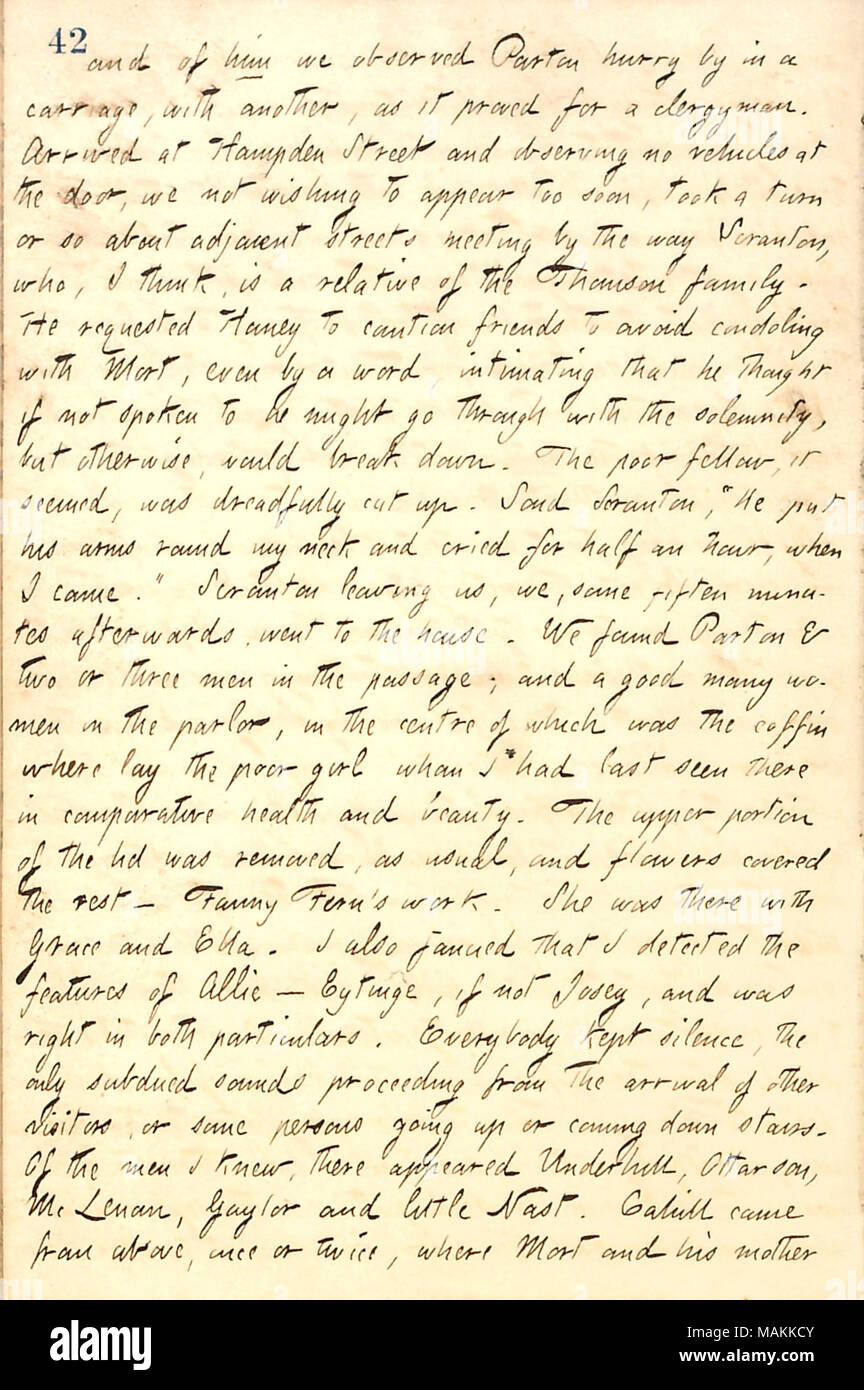 42
and of him we observed Parton hurry by in a
carriage, with another, as it proved for a clergyman.
Arrived at Hampden Street and observing no vehicles at
the door, we not wishing to appear too soon, took a turn
or so about adjacent streets meeting by the way Scranton,
who, I think, is a relative of the Thomson family.
He requested Haney to caution friends to avoid condoling
with Mort, even by a word, intimating that he thought
if not spoken to he might go through with the solemnity,
but otherwise, would break down. The poor fellow, it
seemed, was dreadfully cut up. Said Scranton, "He put
his arms round my neck and cried for half an hour, when
I came." Scranton leaving us, we, some fifteen minu-
tes afterwards, went to the house. We found Parton &
two or three men in the passage; and a good many wo-
men in the parlor, in the centre of which was the coffin
where lay the poor girl whom I had last seen there
in comparative health and beauty. The upper portion
of the lid was removed, as usual, and flowers covered
the rest — Fanny Fern's work. She was there with
Grace and Ella. I also fancied that I detected the
features of Allie — Eytinge, if not Josey, and was
right in both particulars. Everybody kept silence, the
only subdued sounds proceeding from the arrival of other
visitors, or some persons going up or coming down stairs.
Of the men I knew, there appeared Underhill, Ottarson,
Mc Lenan, Gaylor and little Nast. Cahill came
from above, once or twice, where Mort and his mother
alamy
Image ID: MAKKCY
www.alamy.com